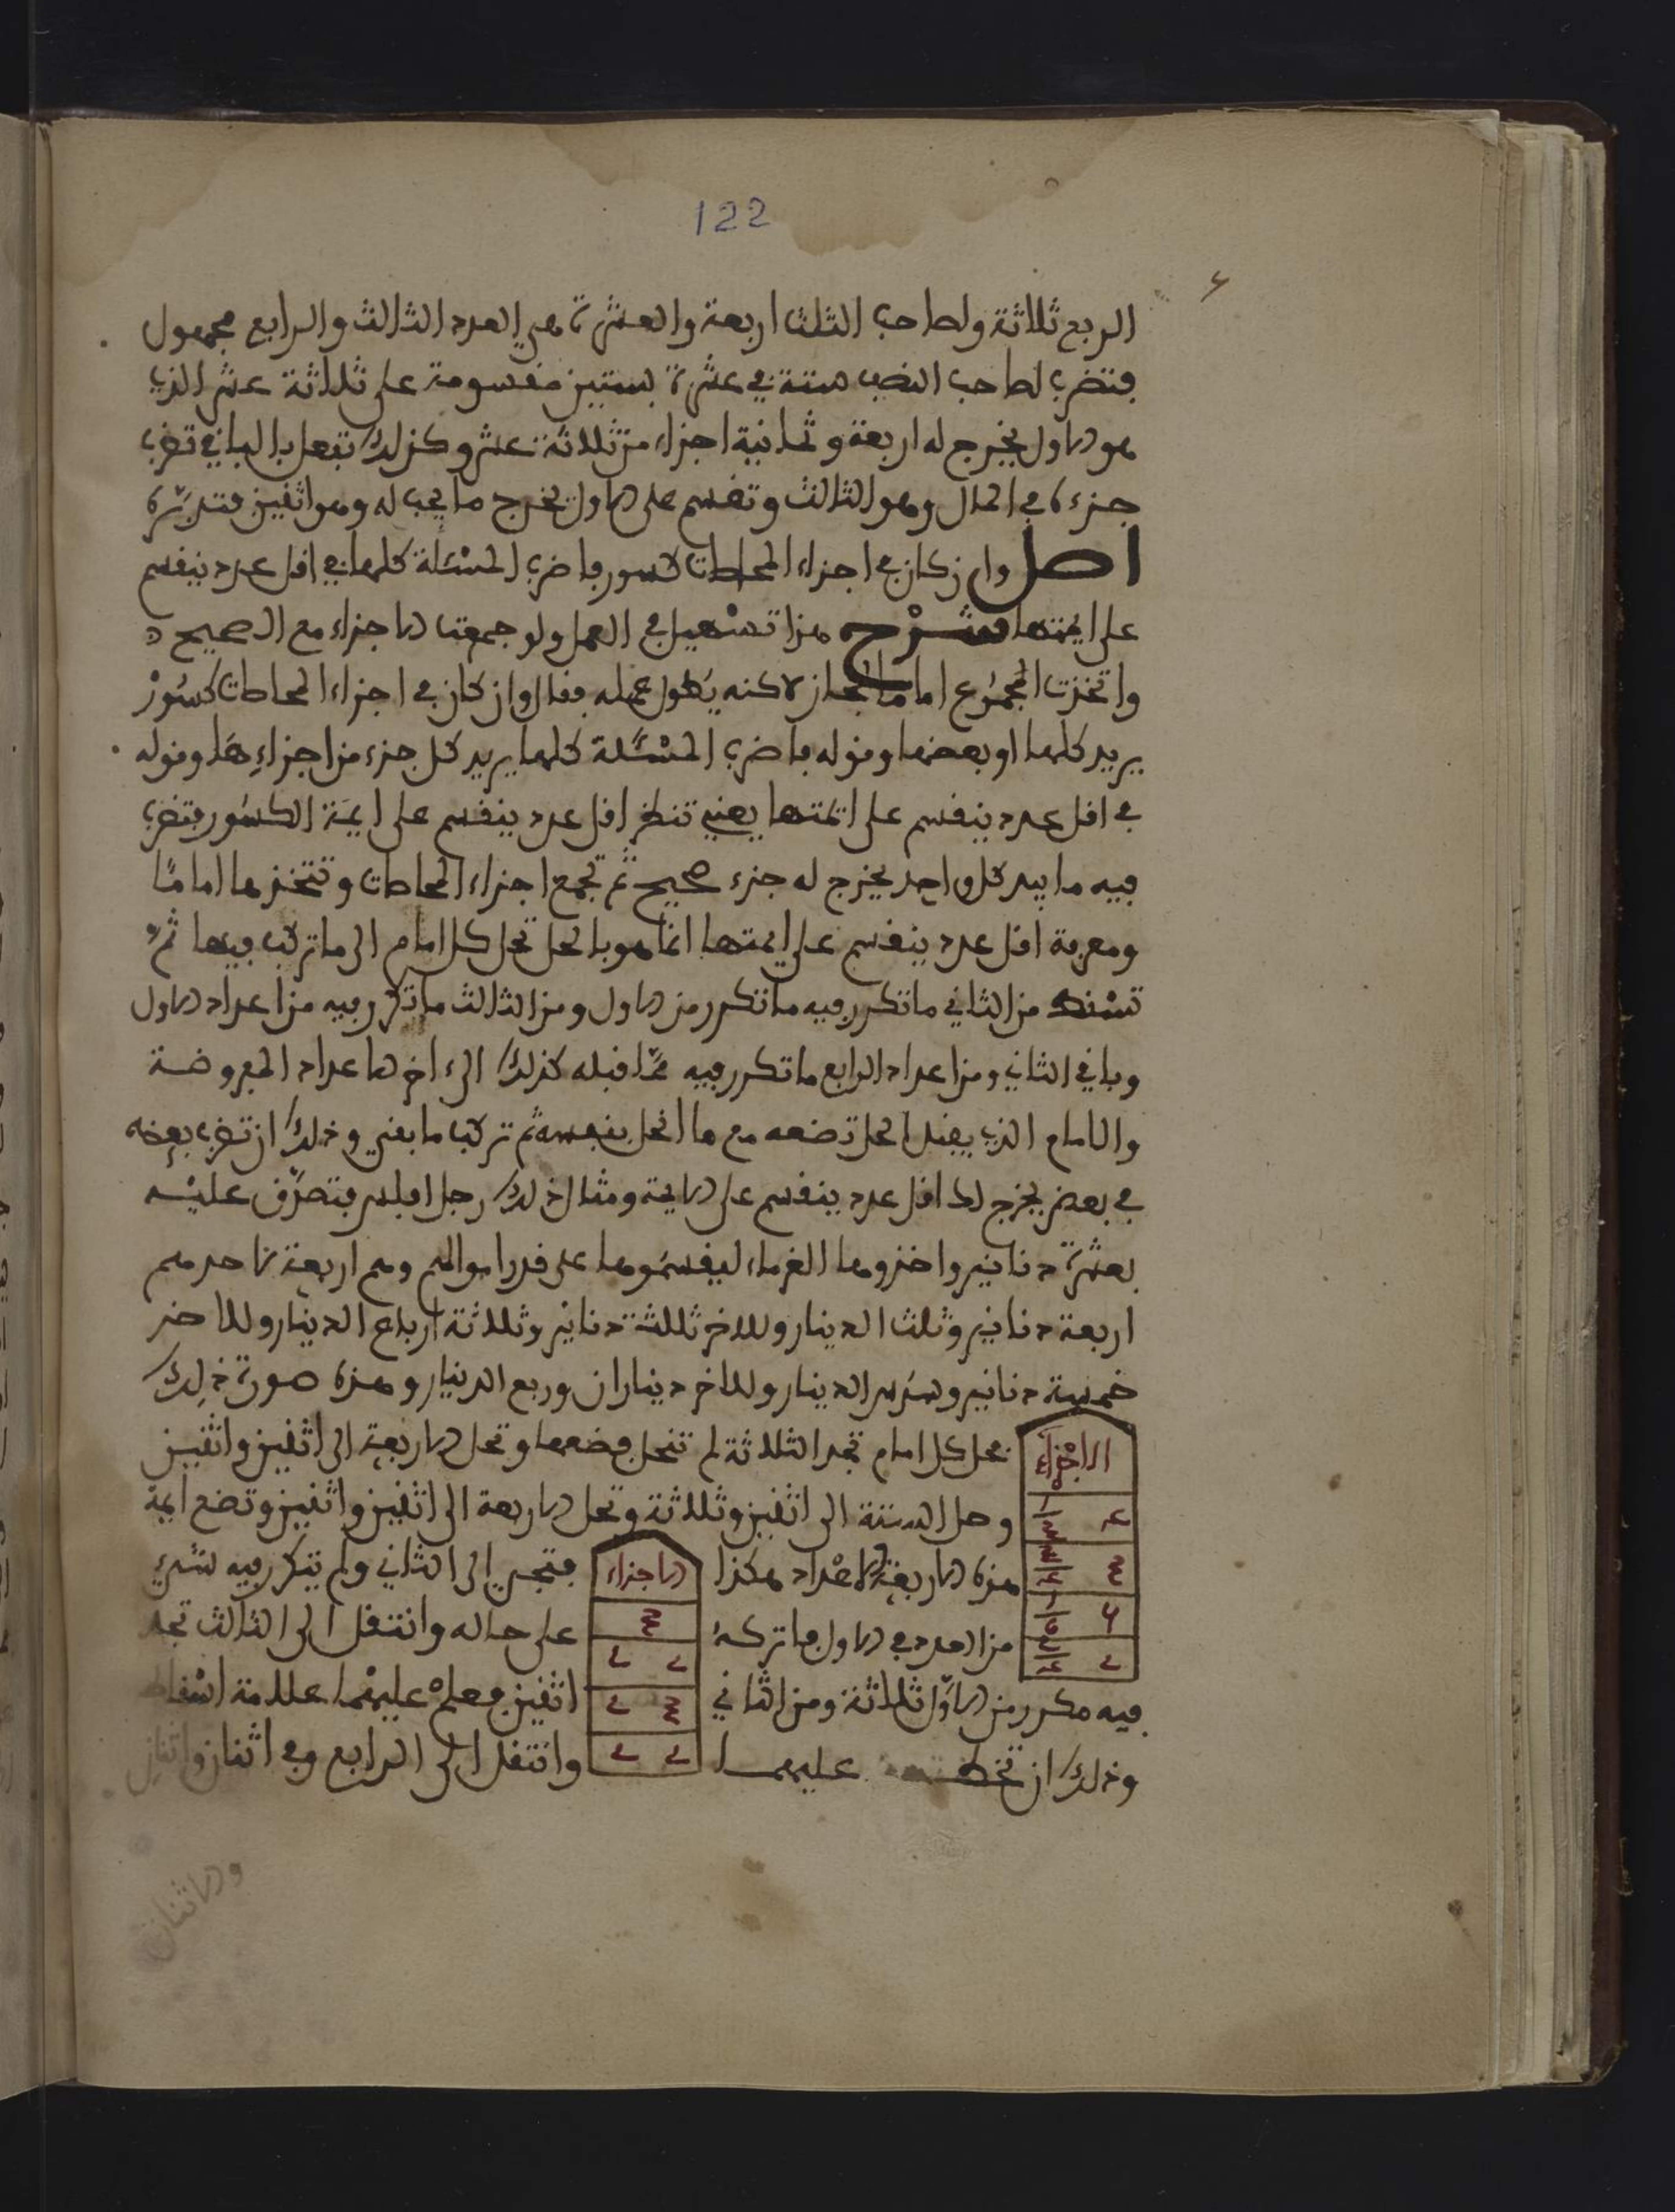 122
الربع ثلاثة ولصاحب الثلث اربعة والعشرة هي العدد الثالث والرابع مجهول
فتضرب لصاحب النصف ستة في عشرة بستين مقسومة على ثلاثة عشر الذي
هو الاول يخرج له اربعة وثمانية اجزاء من ثلاثة عشر وكذلك تفعل بالباقي تضرب
جزءه في المال وهو الثالث وتقسم على الاول يخرج ما يجب له وهو اثنين فتدبره
اصل وان كان في اجزاء المحاصات كسور فاضرب المسئلة كلها في اقل عدد ينقسم
على ايمتها شرح هذا تسهيل في العمل ولو جمعت الاجزاء مع الصحيح
واتخذت المجموع اماما لجاز لاكنه يطول عمله فقال وان كان في اجزاء المحاصات كسور
يريد كلها او بعضها وقوله فاضرب المسئلة كلها يريد كل جزء من اجزاءها وقوله
في اقل عدد ينقسم على ائمتها يعني تنظر اقل عدد ينقسم على ايمة الكسور فتضرب
فيه ما بيد كل واحد يخرج له جزء صحيح ثم تجمع اجزاء المحاصات وتتخذها اماما
ومعرفة اقل عدد ينقسم على ايمتها انما هو بالحل تحل كل امام الى ما تركب فيها ثم
تسقط من الثاني ما تكرر فيه ما تكرر من الاول ومن الثالث ما تكرر فيه من اعداد الاول
وباقي الثاني ومن اعداد الرابع ما تكرر فيه مما قبله كذلك الى اخرها عداد المفروضة
والامام الذي يقبل الحل تضعه مع ما انحل بنفسه ثم تركب ما بقي وذلك ان تضرب بعضه
في بعض يخرج لك اقل عدد ينقسم على الايمة ومثال ذلك رجل افلس فتصدق عليه
بعشرة دنانير واخذوها الغرماء ليقسموها على قدر اموالهم وهم اربعة لاحدهم
اربعة دنانير وثلث الدينار وللاخر ثلاثة دنانير وثلاثة ارباع الدينار وللاخر
خمسة دنانير وسدس الدينار وللاخر ديناران وربع الدينار وهذه صورة ذلك
الاجزاء
تحل كل امام تجد الثلاثة لم تنحل فضعها وتحل الاربعة الى اثنين واثنين
وحل الستة الى اثنين وثلاثة وتحل الاربعة الى اثنين واثنين وتضع ايمة
هذه الاربعة الاعداد هكذا الاجزاء فتجي الى الثاني ولم يتكرر فيه شيء
من العدد في الاول فاتركه على حاله وانتقل الى الثالث تجد
فيه مكرر من الاول ثلاثة ومن الثاني اثنين فعلم عليهما علامة اسقاط
وذلك ان تخط عليهما وانتقل الى الرابع وفي اثنان واثنان
والاثنان